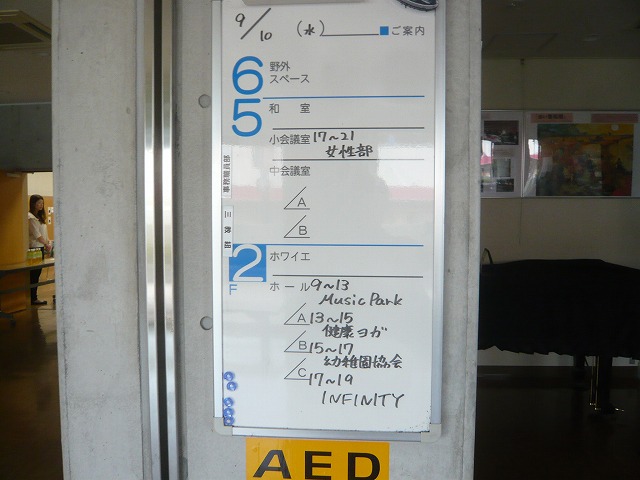 9/10 (水) ■ご案内
6 野外
スペース
5 和 室
小会議室 17~21
女性部
中会議室
A
B
事務職員部
三教組
2F ホワイエ
ホール 9~13
Music Park
A 13~15
健康ヨガ
B 15~17
幼稚園協会
C 17~19
INFINITY
AED